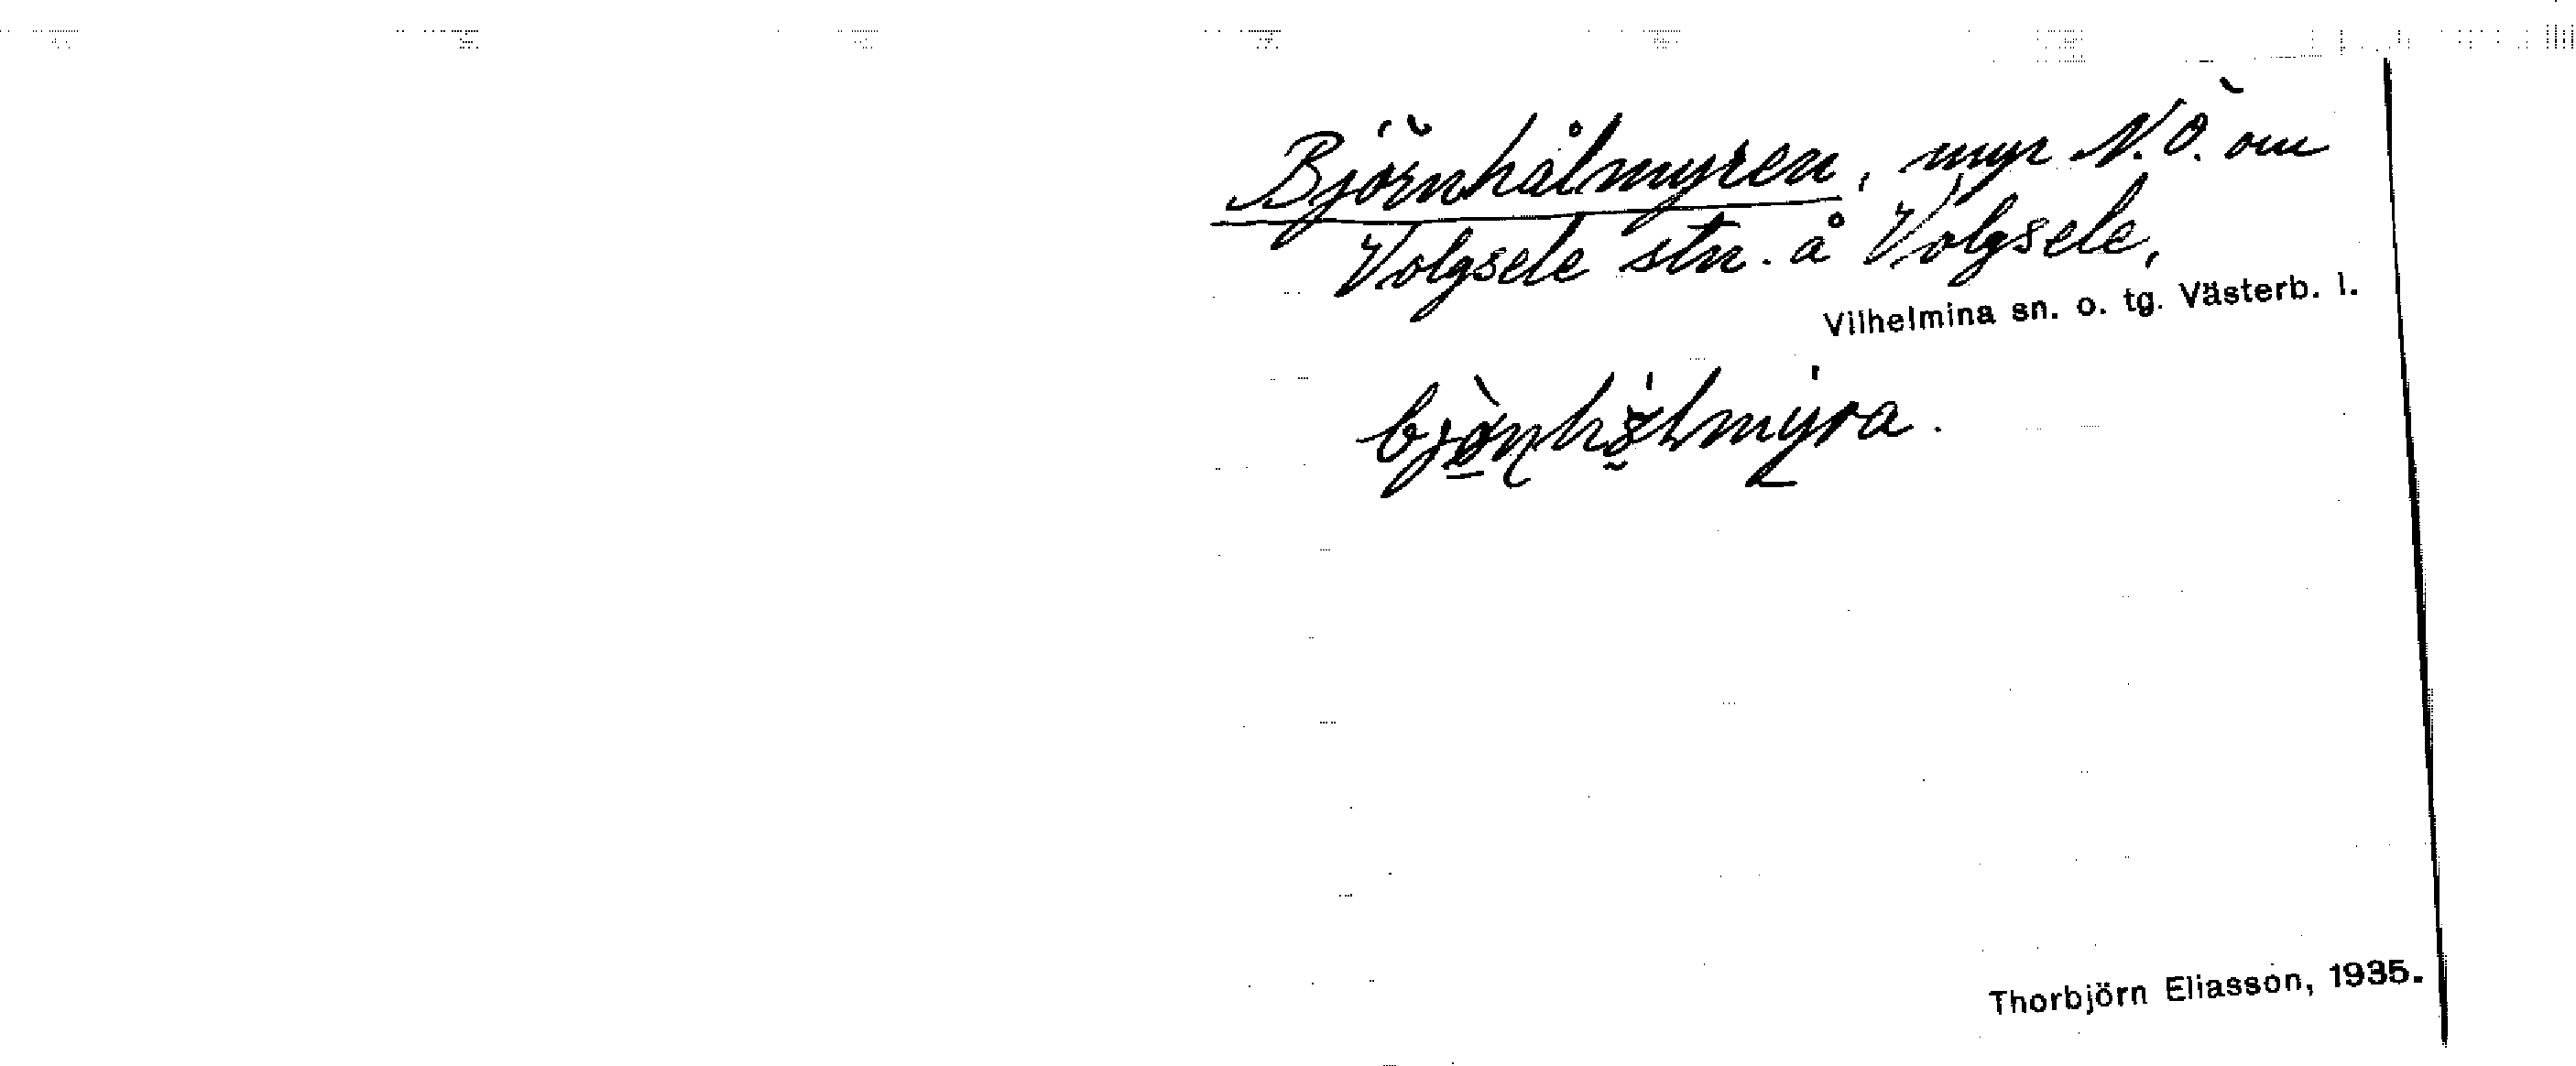 Björnhålmyren, myr N.Ö. om
Volgsele stn. å Volgsele,
Vilhelmina sn. o. tg. Västerb. l.
bjò̠ṇhö̀lmy̠ra.
Thorbjörn Eliasson, 1935.